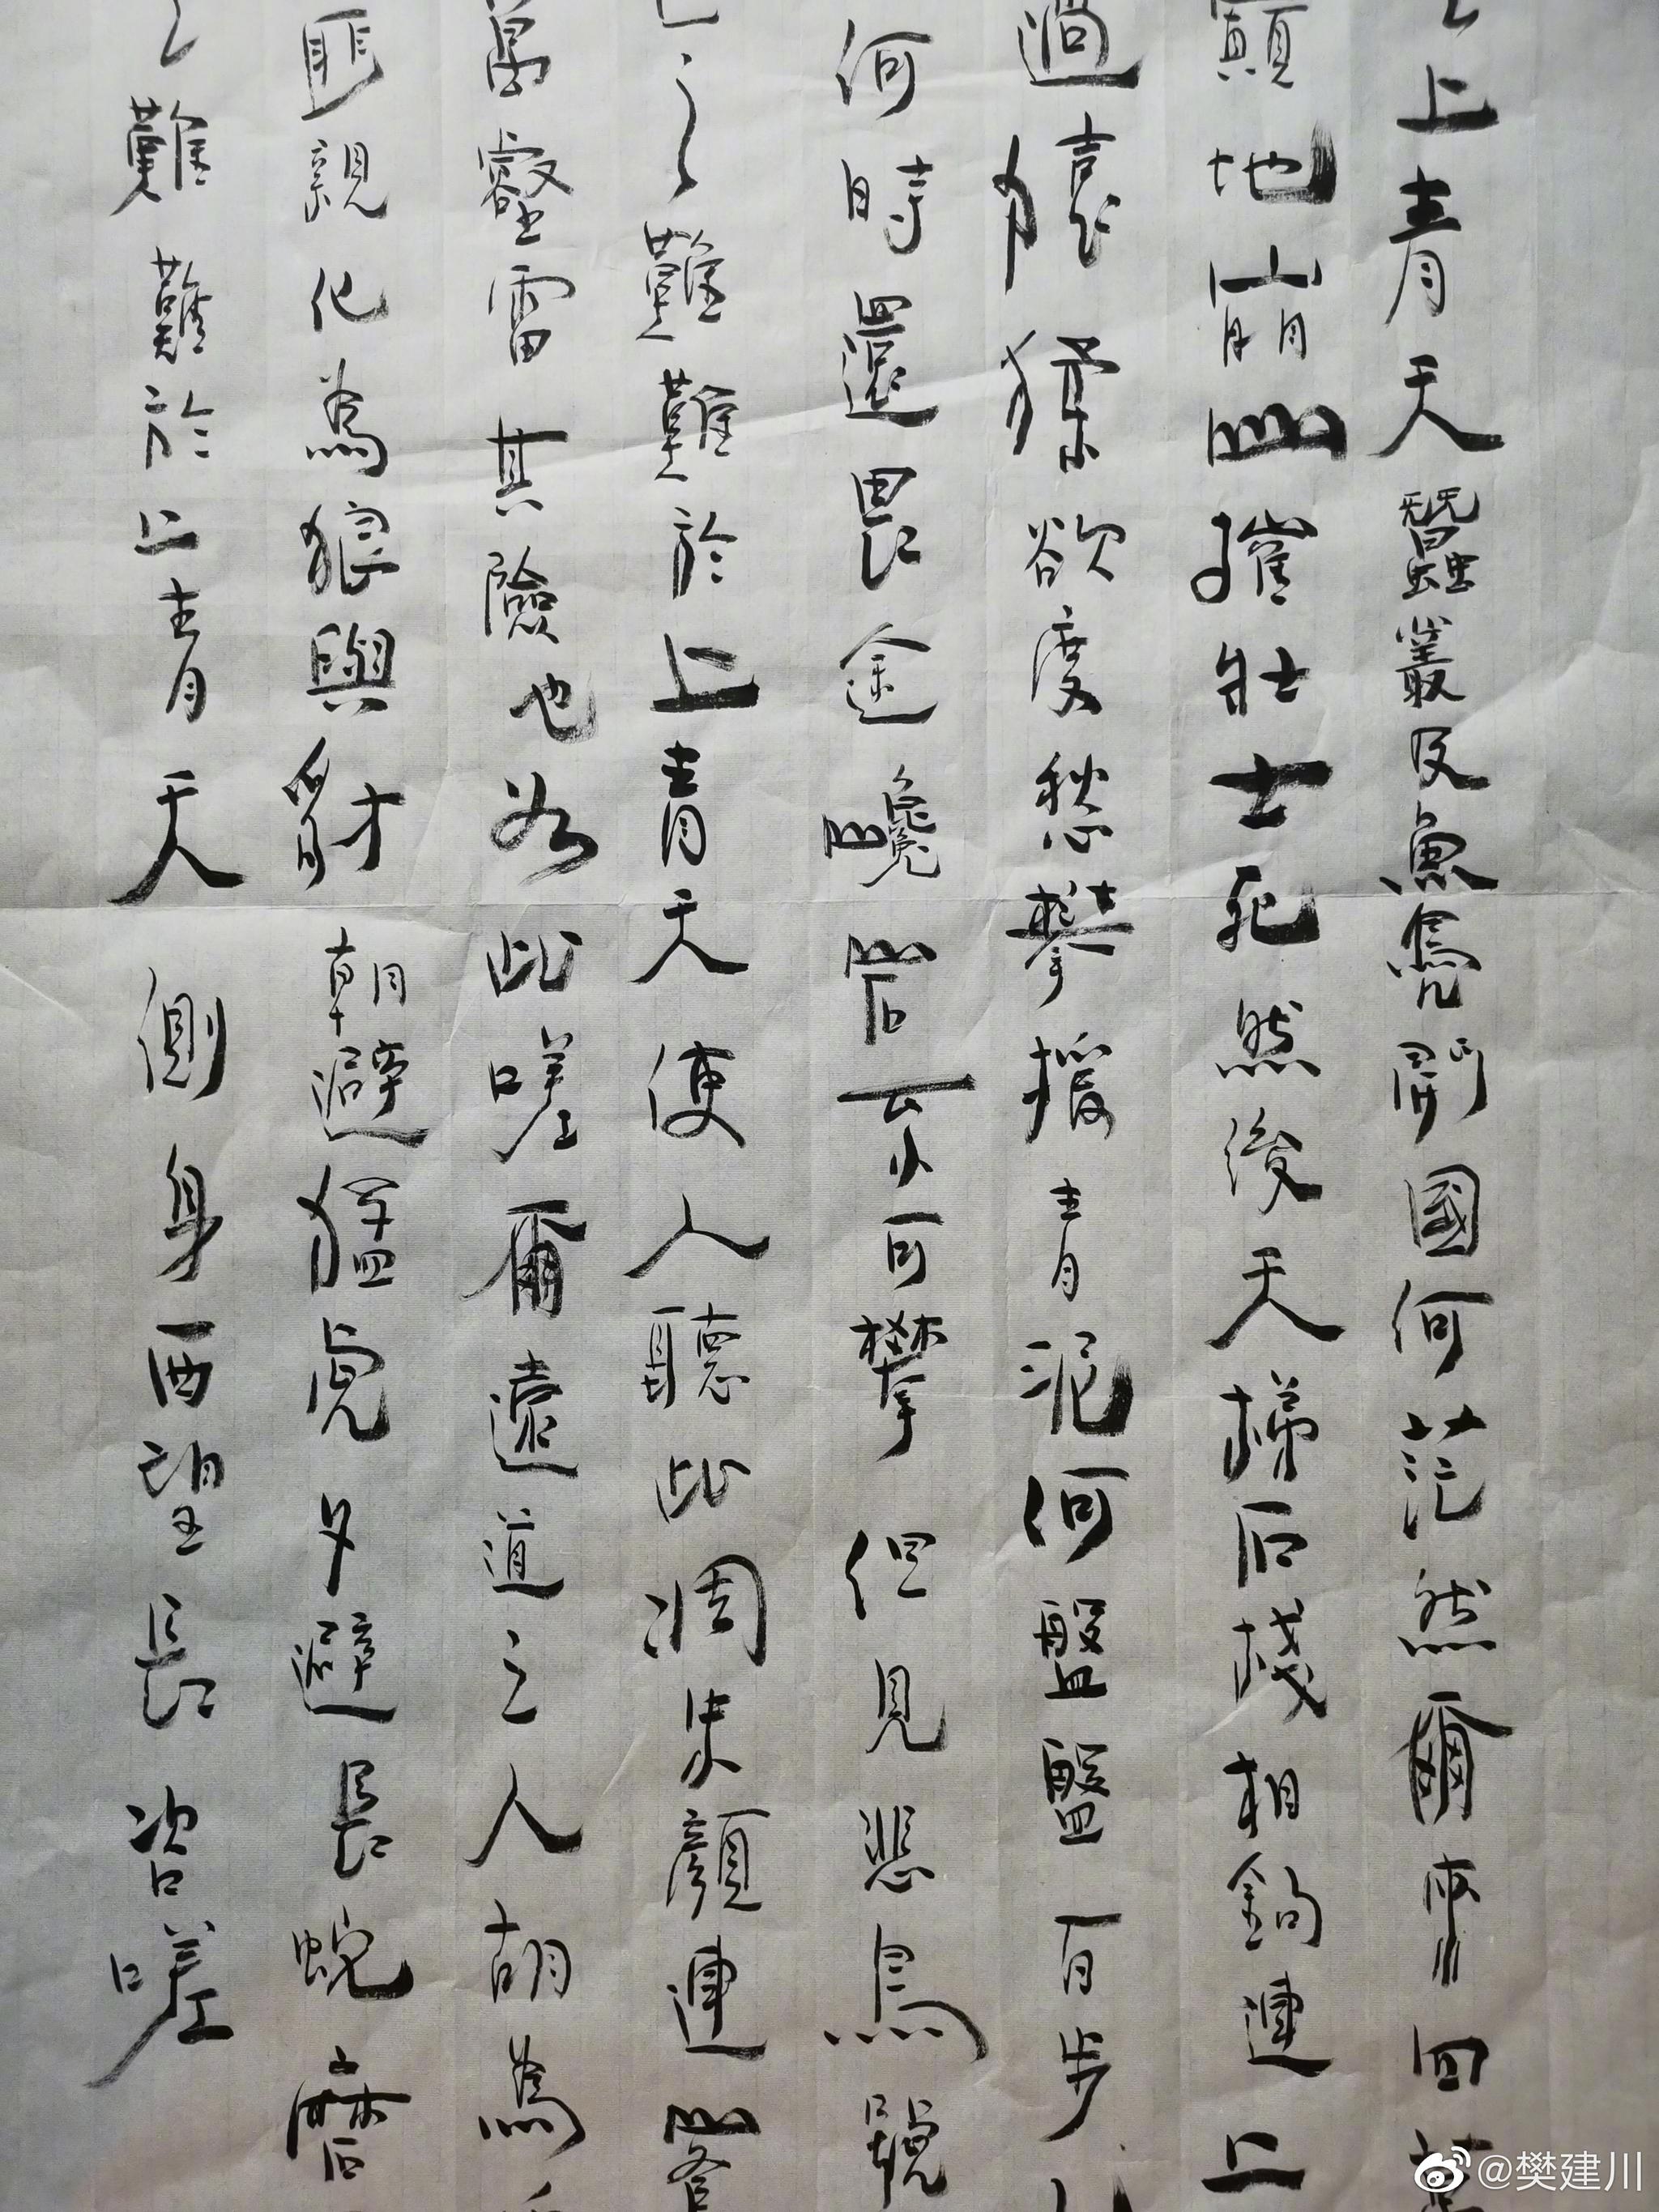 上青天蠶叢及魚鳧開國何茫然爾來四萬
巔地崩山摧壯士死然後天梯石棧相鉤連上
過猿猱欲度愁攀援青泥何盤盤百步
何時還畏途巉岩不可攀但見悲鳥號
之難難於上青天使人聽此凋朱顏連峯
萬壑雷其險也若此嗟爾遠道之人胡為
匪親化為狼與豺朝避猛虎夕避長蛇磨
難難於上青天側身西望長咨嗟
@樊建川